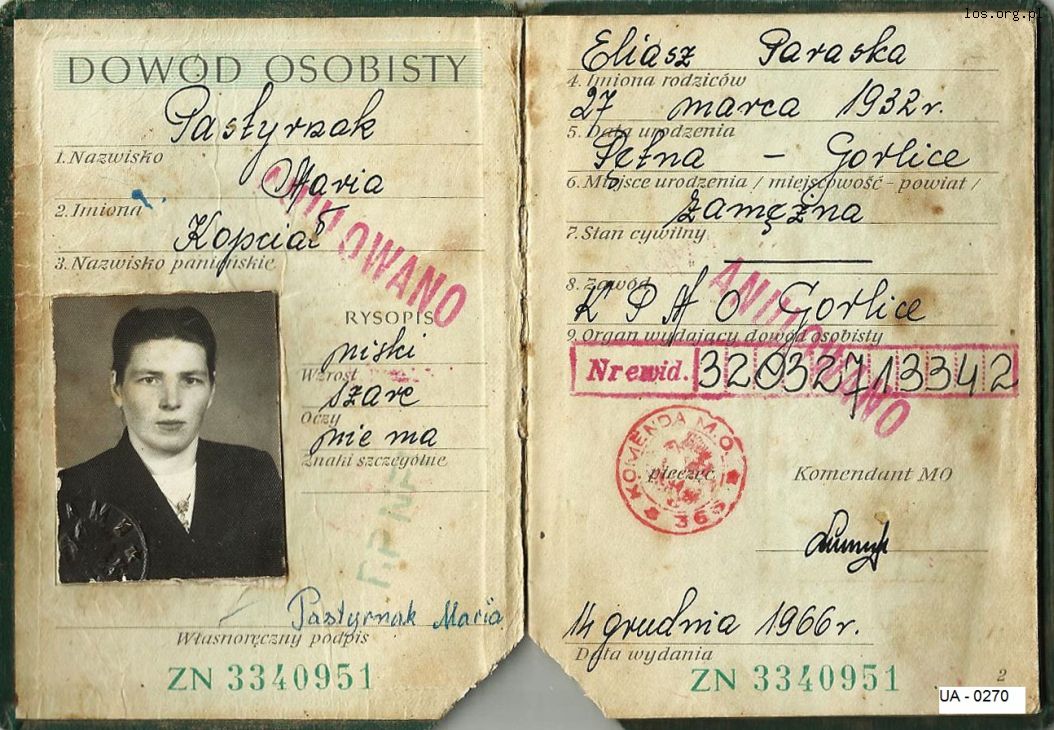 los.org.pl
DOWÓD OSOBISTY
Pastyrnak
1. Nazwisko
Maria
2. Imiona
Kopciał
3. Nazwisko panieńskie
ANULOWANO
RYSOPIS
niski
Wzrost
szare
Oczy
nie ma
Znaki szczególne
Pastyrnak Maria
Własnoręczny podpis
ZN 3340951
Eliasz Paraska
4. Imiona rodziców
27 marca 1932 r.
5. Data urodzenia
Pętna – Gorlice
6. Miejsce urodzenia / miejscowość - powiat /
zamężna
7. Stan cywilny
8. Zawód
K P M O Gorlice
9. Organ wydający dowód osobisty
ANULOWANO
Nr ewid. 32032713342
KOMENDA M.O. 363
pieczęć
Komendant MO
14 grudnia 1966 r.
Data wydania
ZN 3340951
2
UA - 0270